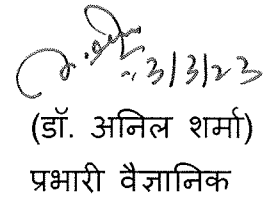 3/3/23
(डॉ. अनिल शर्मा)
प्रभारी वैज्ञानिक